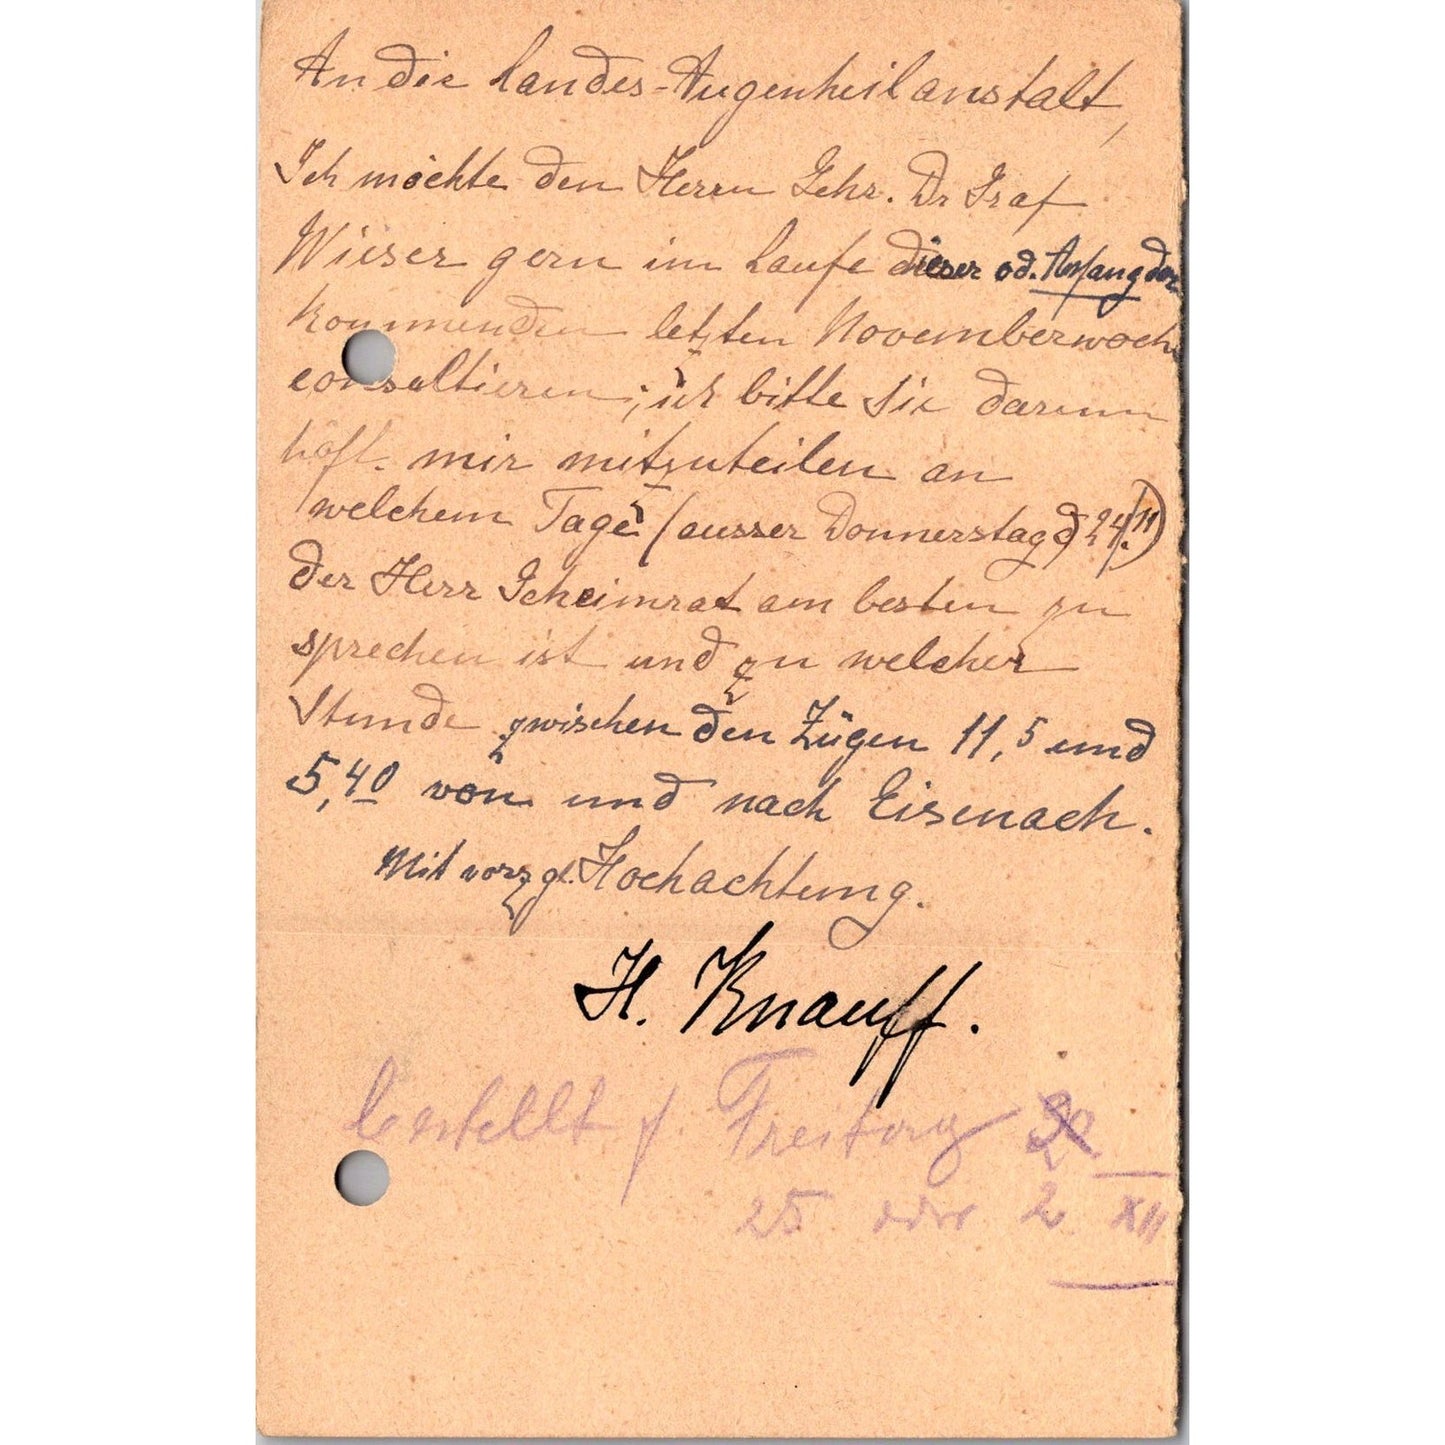 An die Landes-Augenheilanstalt,
Ich möchte den Herrn Gehr. Dr Graf
Wieser gern im Laufe dieser od. Anfang der
kommenden letzten Novemberwoche
consultieren; ich bitte Sie darum
höfl. mir mitzuteilen an
welchem Tage (ausser Donnerstag d 24/11)
der Herr Geheimrat am besten zu
sprechen ist und zu welcher
Stunde zwischen den Zügen 11,5 und
5,40 von und nach Eisenach.
Mit vorzgl. Hochachtung.
H. Knauff.
bestellt f. Freitag
25 oder 2 XII